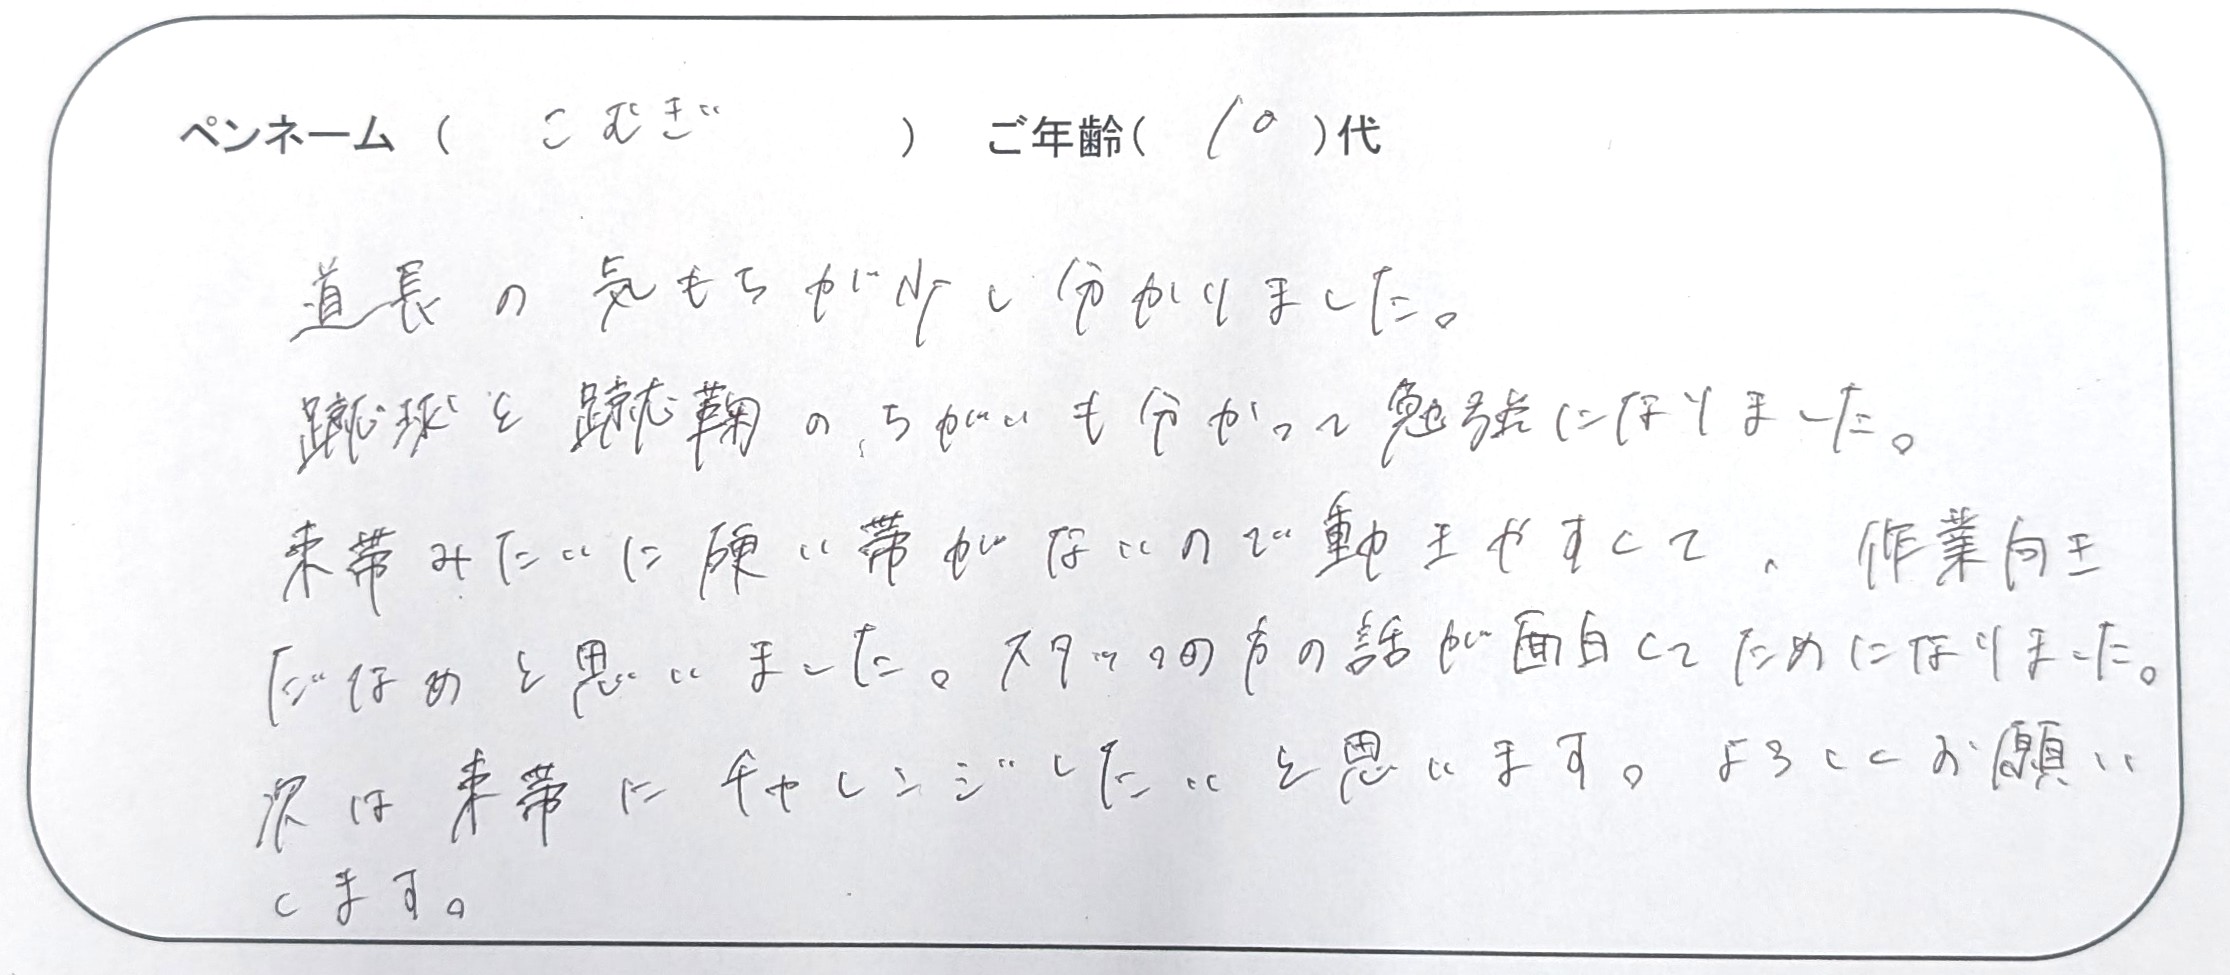 ペンネーム ( こむぎ ) ご年齢( 10 )代
道長の気もちが少し分かりました。
蹴球と蹴鞠のちがいも分かって勉強になりました。
束帯みたいに硬い帯がないので動きやすくて、作業向き
だなあと思いました。スタッフの方の話が面白くてためになりました。
次は束帯にチャレンジしたいと思います。よろしくお願い
します。